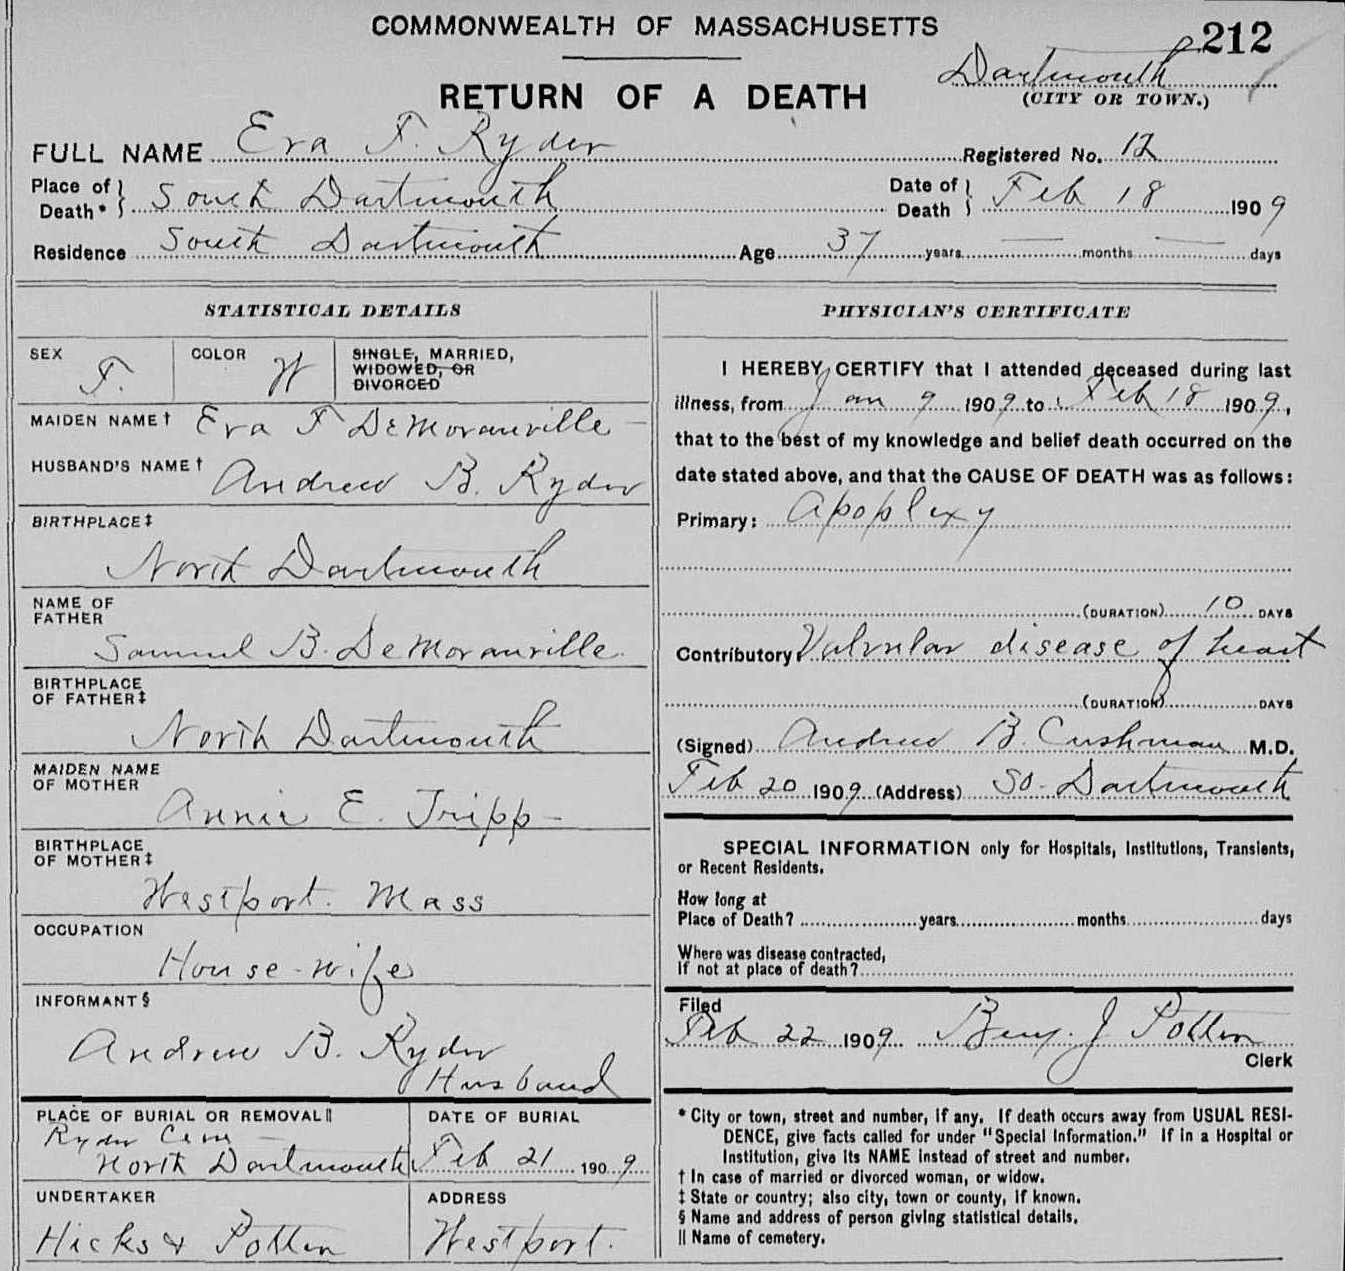 COMMONWEALTH OF MASSACHUSETTS
212
RETURN OF A DEATH
Dartmouth
(CITY OR TOWN.)
FULL NAME Eva F. Ryder Registered No. 12
Place of Death* South Dartmouth Date of Death Feb 18 1909
Residence South Dartmouth Age 37 years — months — days
STATISTICAL DETAILS
SEX F. COLOR W SINGLE, MARRIED, WIDOWED, OR DIVORCED
MAIDEN NAME† Eva F DeMoranville
HUSBAND'S NAME† Andrew B. Ryder
BIRTHPLACE‡
North Dartmouth
NAME OF FATHER
Samuel B. DeMoranville
BIRTHPLACE OF FATHER‡
North Dartmouth
MAIDEN NAME OF MOTHER
Annie E. Tripp
BIRTHPLACE OF MOTHER‡
Westport. Mass
OCCUPATION
House-wife
INFORMANT§
Andrew B. Ryder
Husband
PLACE OF BURIAL OR REMOVAL‖ DATE OF BURIAL
Ryder Cem
North Dartmouth Feb 21 1909
UNDERTAKER ADDRESS
Hicks & Potter Westport.
PHYSICIAN'S CERTIFICATE
I HEREBY CERTIFY that I attended deceased during last
illness, from Jan 9 1909 to Feb 18 1909,
that to the best of my knowledge and belief death occurred on the
date stated above, and that the CAUSE OF DEATH was as follows:
Primary: Apoplexy
(DURATION) 10 DAYS
Contributory Valvular disease of heart
(DURATION) DAYS
(Signed) Andrew B. Cushman M.D.
Feb 20 1909 (Address) So. Dartmouth
SPECIAL INFORMATION only for Hospitals, Institutions, Transients,
or Recent Residents.
How long at
Place of Death? years months days
Where was disease contracted,
If not at place of death?
Filed
Feb 22 1909 Benj. J Potter
Clerk
* City or town, street and number, if any. If death occurs away from USUAL RESI-
DENCE, give facts called for under "Special Information." If in a Hospital or
Institution, give its NAME instead of street and number.
† In case of married or divorced woman, or widow.
‡ State or country; also city, town or county, if known.
§ Name and address of person giving statistical details.
‖ Name of cemetery.